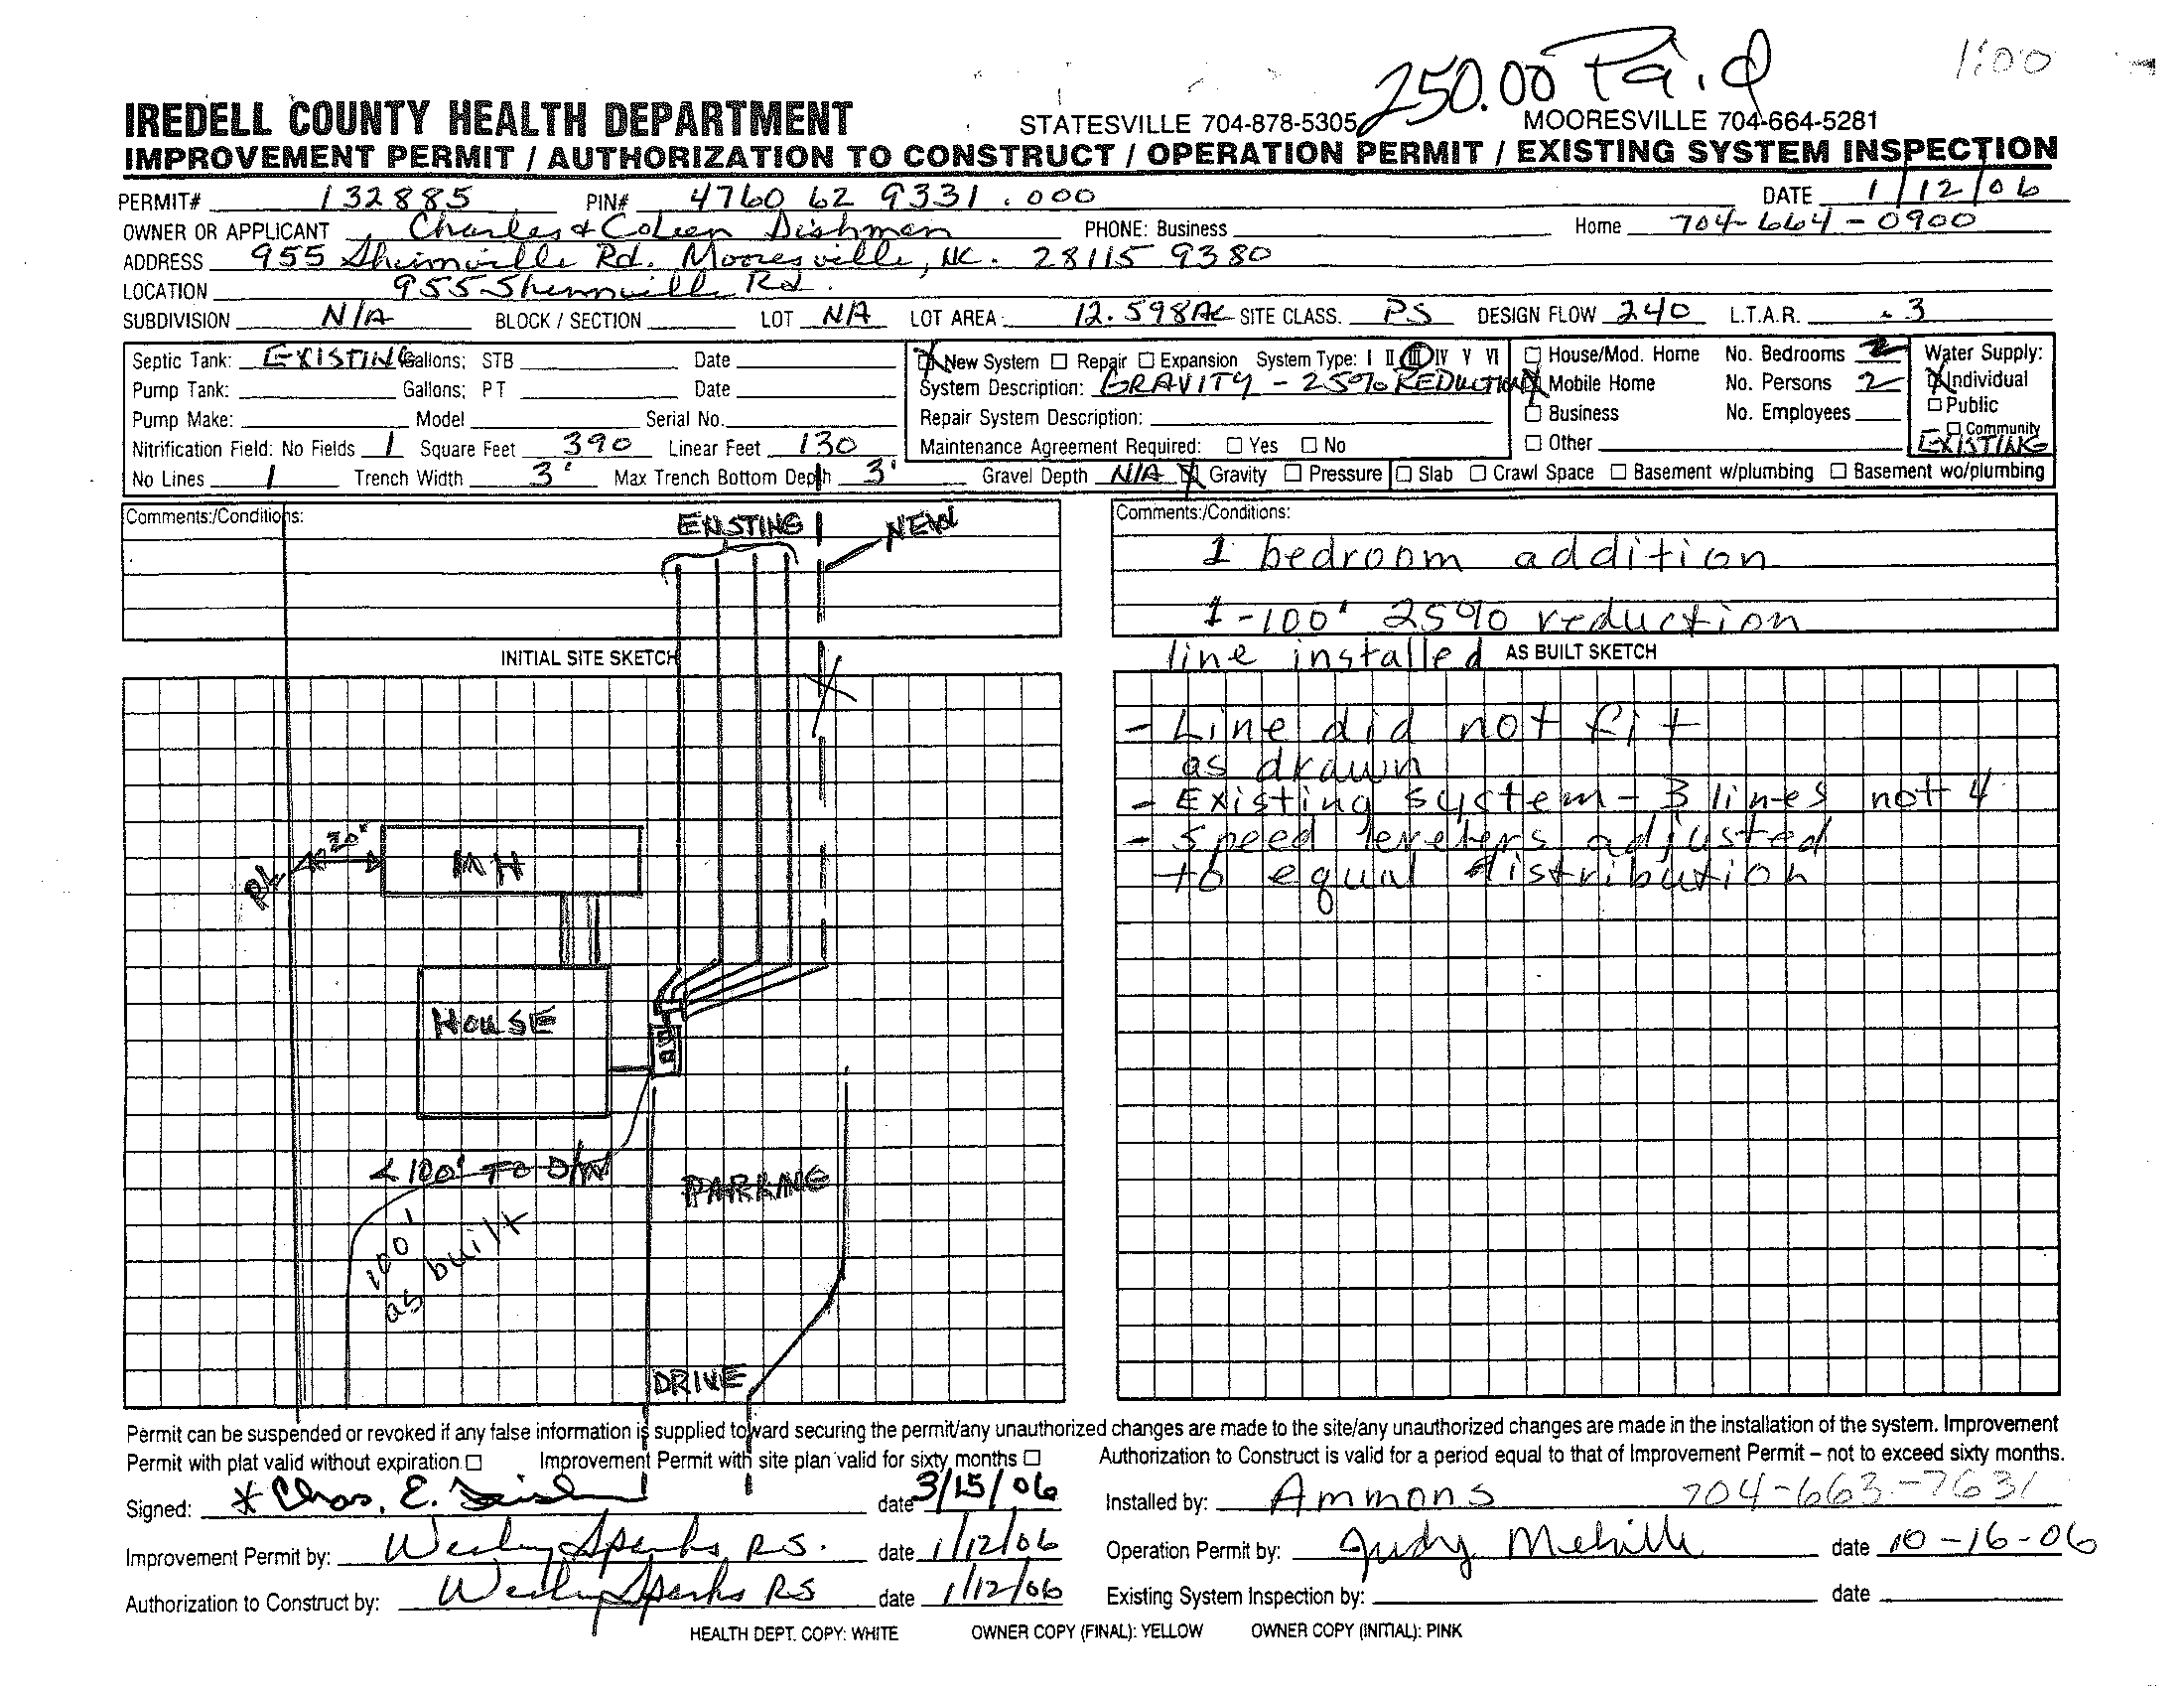 250.00 Paid
1:00
IREDELL COUNTY HEALTH DEPARTMENT STATESVILLE 704-878-5305 MOORESVILLE 704-664-5281
IMPROVEMENT PERMIT / AUTHORIZATION TO CONSTRUCT / OPERATION PERMIT / EXISTING SYSTEM INSPECTION
PERMIT# 132885 PIN# 4760 62 9331.000 DATE 1/12/06
OWNER OR APPLICANT Charles & Coleen Dishman PHONE: Business Home 704-664-0900
ADDRESS 955 Shinnville Rd. Mooresville, NC. 28115 9380
LOCATION 955 Shinnville Rd.
SUBDIVISION N/A BLOCK / SECTION LOT NA LOT AREA 12.598AC SITE CLASS. PS DESIGN FLOW 240 L.T.A.R. .3
Septic Tank: EXISTING Gallons; STB Date
Pump Tank: Gallons; PT Date
Pump Make: Model Serial No.
Nitrification Field: No Fields 1 Square Feet 390 Linear Feet 130
New System Repair Expansion System Type: I II III IV V VI
System Description: GRAVITY - 25% REDUCTION
Repair System Description:
Maintenance Agreement Required: Yes No
House/Mod. Home No. Bedrooms 2
Mobile Home No. Persons 2
Business No. Employees
Other
Water Supply:
Individual
Public
Community
EXISTING
No Lines 1 Trench Width 3' Max Trench Bottom Depth 3' Gravel Depth N/A Gravity Pressure Slab Crawl Space Basement w/plumbing Basement wo/plumbing
Comments:/Conditions:
EXISTING NEW
INITIAL SITE SKETCH
PL 20' MH
HOUSE
<100' TO D/W
100' as built
PARKING
DRIVE
Comments:/Conditions:
1 bedroom addition
1-100' 25% reduction
line installed AS BUILT SKETCH
- Line did not fit
as drawn
- Existing system - 3 lines not 4
- speed levelers adjusted
to equal distribution
Permit can be suspended or revoked if any false information is supplied toward securing the permit/any unauthorized changes are made to the site/any unauthorized changes are made in the installation of the system. Improvement
Permit with plat valid without expiration Improvement Permit with site plan valid for sixty months Authorization to Construct is valid for a period equal to that of Improvement Permit – not to exceed sixty months.
Signed: * Chas. E. Dishman date 3/15/06 Installed by: Ammons 704-663-7631
Improvement Permit by: Wesley Sparks RS. date 1/12/06 Operation Permit by: Judy Melville date 10-16-06
Authorization to Construct by: Wesley Sparks RS date 1/12/06 Existing System Inspection by: date
HEALTH DEPT. COPY: WHITE OWNER COPY (FINAL): YELLOW OWNER COPY (INITIAL): PINK